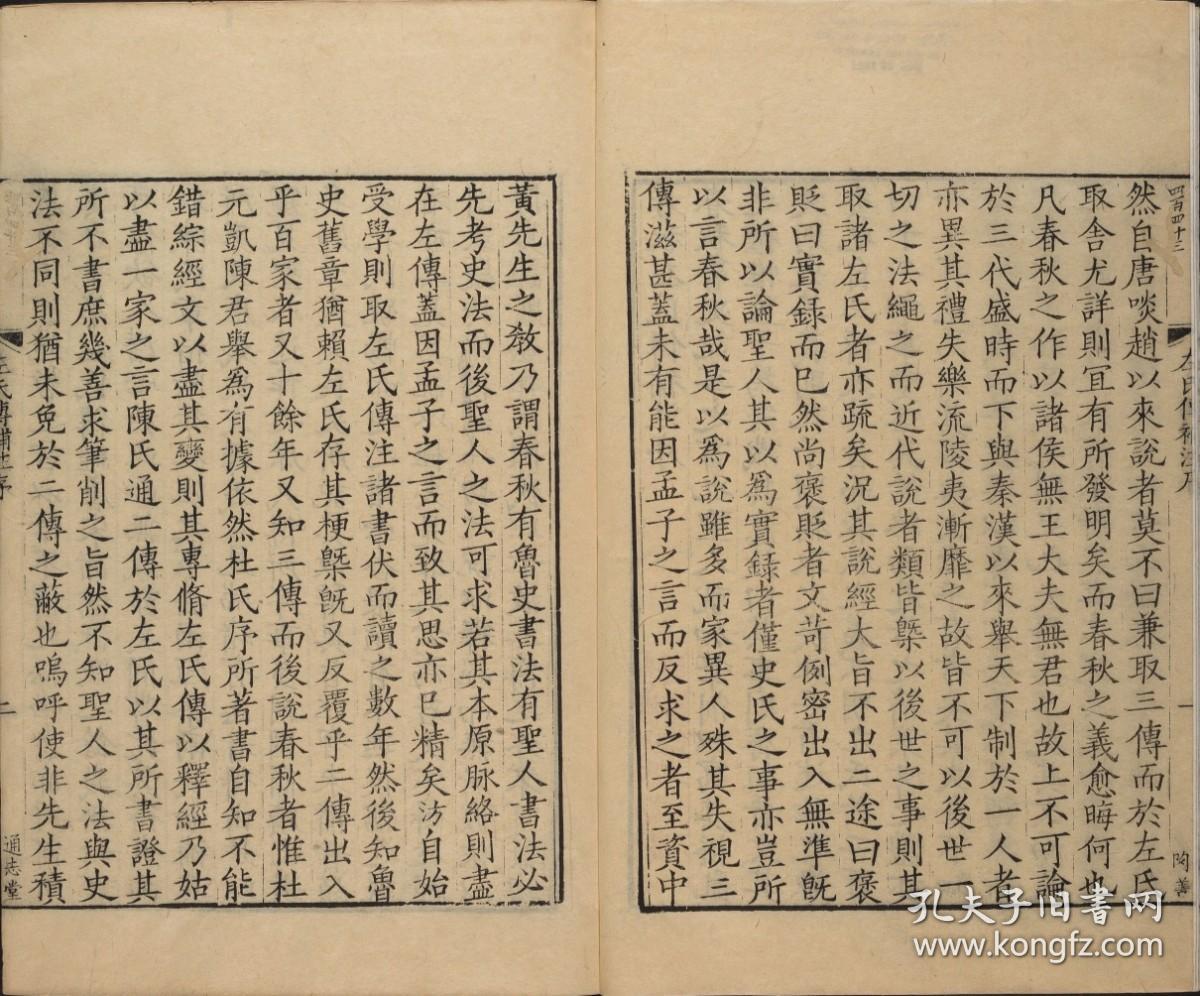 四百四十三
然自唐啖趙以來說者莫不曰兼取三傳而於左氏
取舍尤詳則冝有所發明矣而春秋之義愈晦何也
凡春秋之作以諸侯無王大夫無君也故上不可論
於三代盛時而下與秦漢以來舉天下制於一人者
亦異其禮失樂流陵夷漸靡之故皆不可以後世一
切之法繩之而近代說者類皆槩以後世之事則其
取諸左氏者亦疏矣況其說經大旨不出二途曰褒
貶曰實録而巳然尚褒貶者文苛例密出入無準旣
非所以論聖人其以爲實録者僅史氏之事亦豈所
以言春秋哉是以爲說雖多而家異人殊其失視三
傳滋甚蓋未有能因孟子之言而反求之者至資中
陶善
黃先生之教乃謂春秋有魯史書法有聖人書法必
先考史法而後聖人之法可求若其本原脉絡則盡
在左傳蓋因孟子之言而致其思亦巳精矣汸自始
受學則取左氏傳注諸書伏而讀之數年然後知魯
史舊章猶賴左氏存其梗槩旣又反覆乎二傳出入
乎百家者又十餘年又知三傳而後說春秋者惟杜
元凱陳君舉爲有據依然杜氏序所著書自知不能
錯綜經文以盡其變則其專脩左氏傳以釋經乃姑
以盡一家之言陳氏通二傳於左氏以其所書證其
所不書庶幾善求筆削之旨然不知聖人之法與史
法不同則猶未免於二傳之蔽也嗚呼使非先生積
左氏傳補注序
二
通志堂
孔夫子旧书网
www.kongfz.com